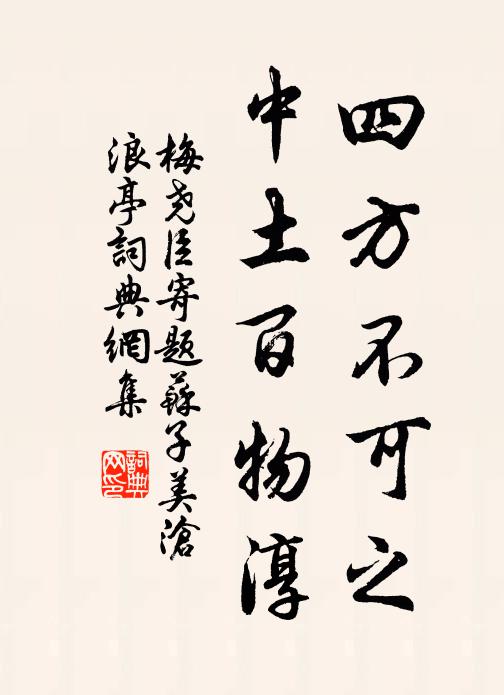 四方不可之
中土百物淳
梅尧臣寄题蘇子美滄
浪亭詞典網集
詞典网印